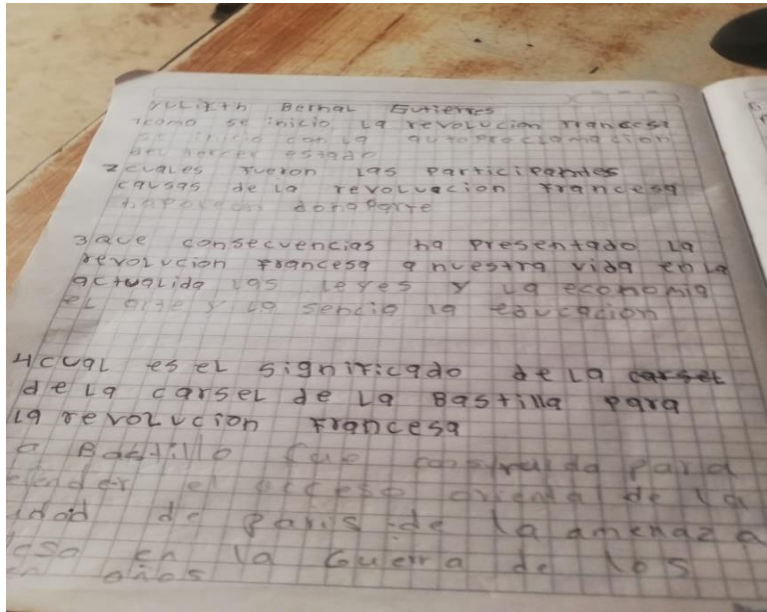 Yulieth Bernal Gutierres
1como se inicio la revolucion francesa
se inicio con la autoproclamacion
del tercer estado
2cuales fueron las participantes
causas de la revoluacion francesa
Napoleon bonaparte
3que consecuencias ha presentado la
revolucion francesa a nuestra vida en la
actualida las leyes y la economia
el arte y la sencia la educacion
4cual es el significado de la carsel
de la carsel de la Bastilla para
la revolucion francesa
a Bastilla fue construida para
efender el acceso oriental de la
idad de paris de la amenaza
lesa en la Guerra de los
en años